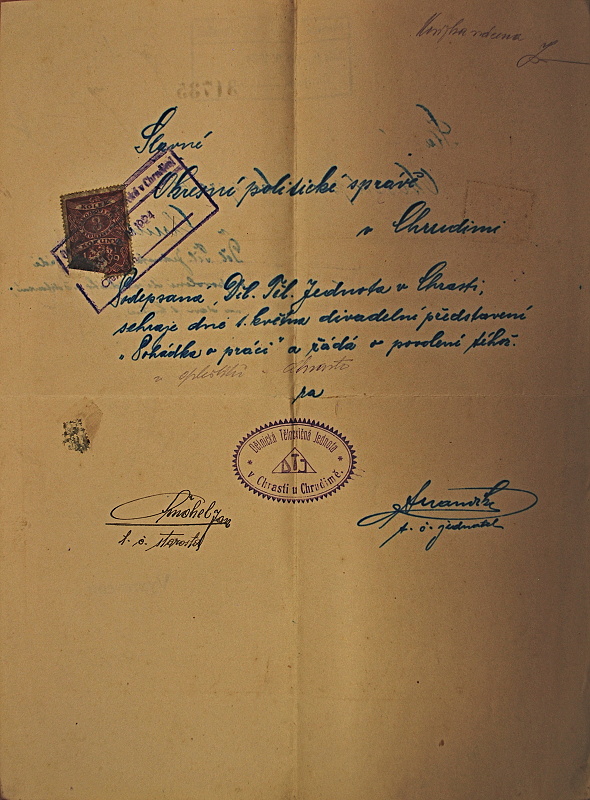 Slavné
Okresní politické správě
v Chrudimi
1924
Podepsaná, Děl. Těl. Jednota v Chrasti,
sehraje dne 1. května divadelní představení
„Pohádka o práci" a žádá o povolení téhož.
v Chrasti
za
Dělnická Tělocvičná Jednota
DTJ
v Chrasti u Chrudimě.
Jan
t. č. starosta
t. č. jednatel